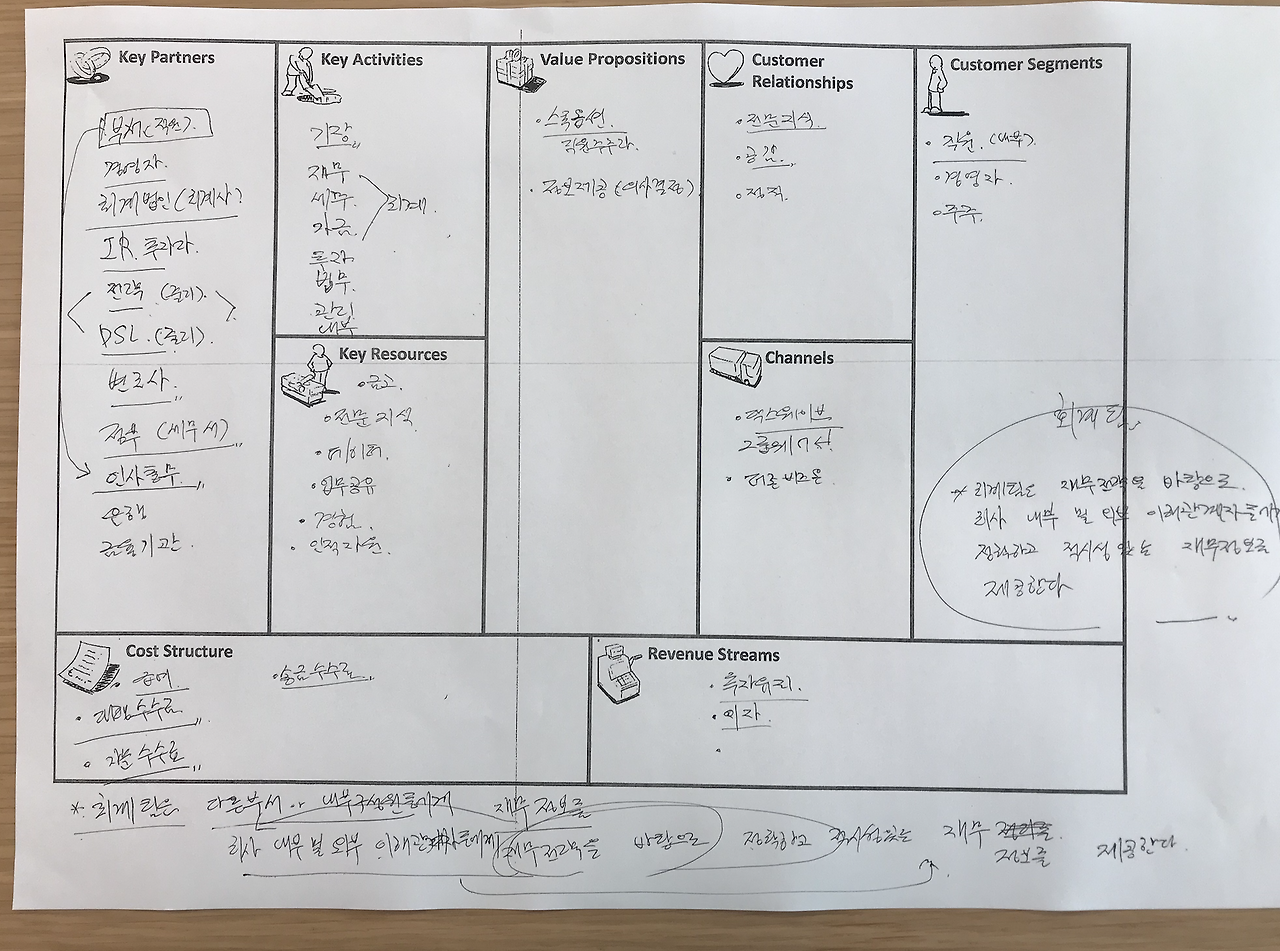 Key Partners
부서(직원).
경영자.
회계법인(회계사)
I.R. 투자자.
전략 (줄리).
DSL. (줄리).
변호사.
정부 (세무서)
인사총무
은행
금융기관.
Key Activities
기장
재무
세무.
회계.
자금.
투자.
법무.
관리
내부
Key Resources
전문 지식
데이터.
업무공유
경험.
인적자원.
Value Propositions
스톡옵션.
정보제공 (의사결정).
Customer
Relationships
전문지식.
공감.
정직.
Channels
그룹웨어
더존비즈온
Customer Segments
직원. (내부).
경영자.
주주.
회계팀
* 회계팀은 재무전략을 바탕으로
회사 내부 및 외부 이해관계자들에게
정확하고 적시성 있는 재무정보를
제공한다
Cost Structure
급여.
송금수수료
수수료
수수료
Revenue Streams
투자유치.
이자.
* 회계팀은 다른부서 or 내부구성원들에게 재무정보를
회사 내부 및 외부 이해관계자들에게 재무전략을 바탕으로 정확하고 적시성있는 재무
정보를 제공한다.